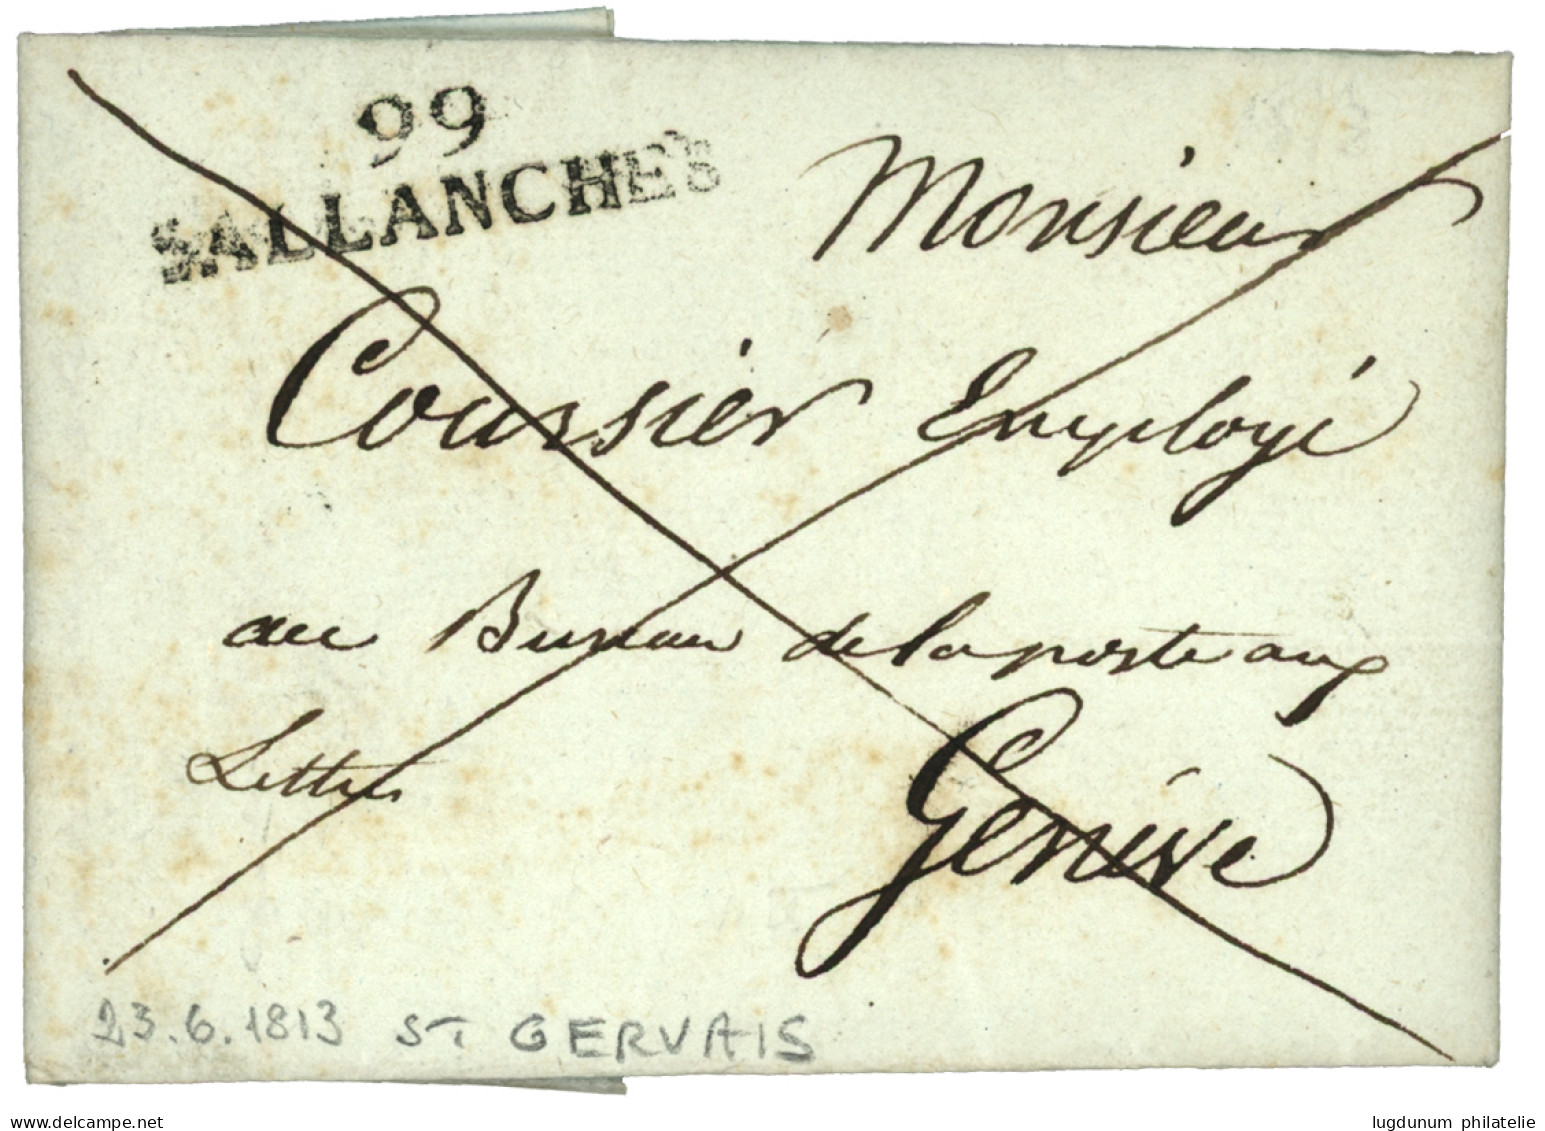 99
SALLANCHES
Monsieur
Coursier Employé
au Bureau de la poste aux
Lettres
Genève
23.6.1813 ST GERVAIS
www.delcampe.net
lugdunum philatelie